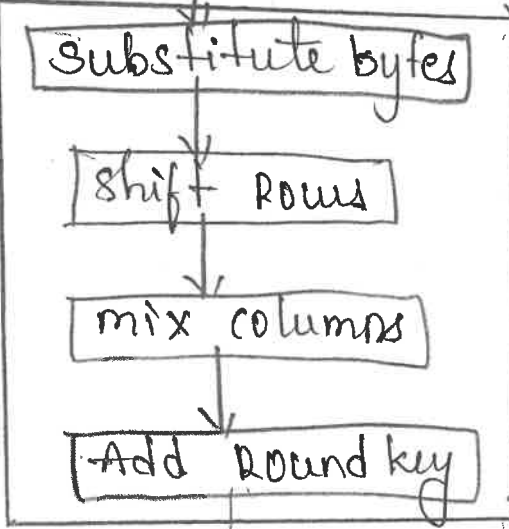 Substitute bytes
Shift Rows
mix columns
Add Round key